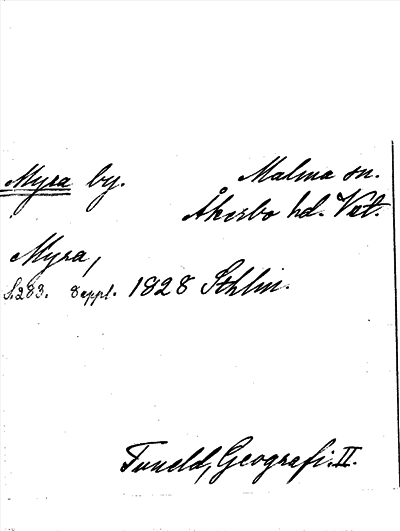 Myra by. Malma sn.
Åkerbo hd. Vstm.
Myra,
S. 283. 8 uppl. 1828 Sthlm.
Tuneld, Geografi. II.